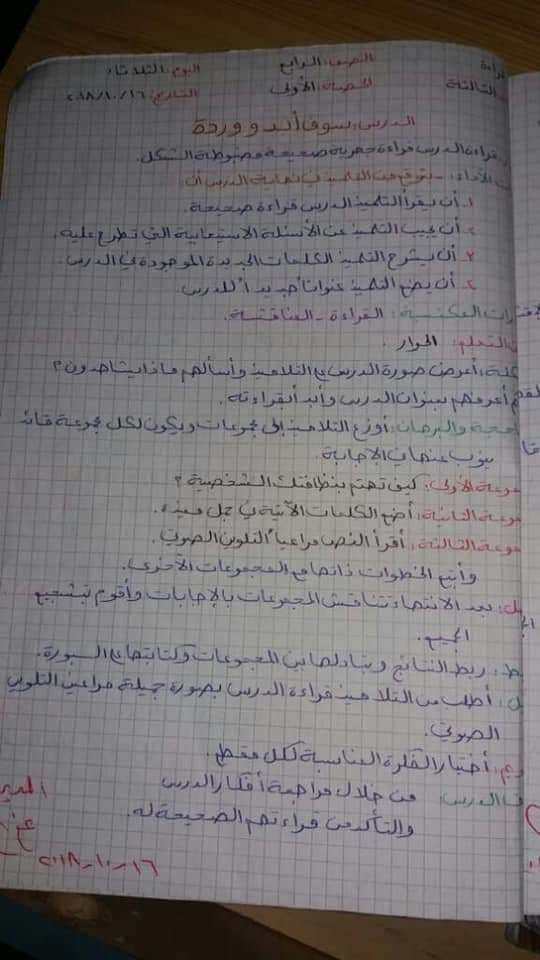 قراءة الصف: الرابع اليوم: الثلاثاء
الثالثة الحصة: الأولى التاريخ: ٢٠١٨/١٠/١٦
الدرس: سوف أبدو وردة
قراءة الدرس قراءة جهرية صحيحة مضبوطة بالشكل.
الأداء: - يتوقع من التلميذ في نهاية الدرس أن
١. أن يقرأ التلميذ الدرس قراءة صحيحة.
٢. أن يجيب التلميذ عن الأسئلة الاستيعابية التي تطرح عليه.
٣. أن يشرح التلميذ الكلمات الجديدة الموجودة في الدرس.
٤. أن يضع التلميذ عنواناً جديداً للدرس.
المكتسبة: القراءة - المناقشة.
التعلم: الحوار
أعرض صورة الدرس على التلاميذ وأسألهم ماذا يشاهدون؟
أعرفهم بعنوان الدرس وأبدأ بقراءته.
والبرهان: أوزع التلاميذ إلى مجموعات ويكون لكل مجموعة قائد
ينوب عنها في الإجابة.
الأولى: كيف تهتم بنظافتك الشخصية؟
الثانية: أضع الكلمات الآتية في جمل مفيدة.
الثالثة: أقرأ النص مراعياً التلوين الصوتي.
وأتبع الخطوات ذاتها مع المجموعات الأخرى.
بعد الانتهاء تتناقش المجموعات بالإجابات وأقوم بتشجيع
الجميع.
ربط النتائج وتبادلها بين المجموعات وكتابتها على السبورة.
أطلب من التلاميذ قراءة الدرس بصورة جميلة مراعين التلوين
الصوتي.
أختيار الفكرة المناسبة لكل مقطع
الدرس: من خلال مراجعة أفكار الدرس
والتأكد من قراءتهم الصحيحة له.
٢٠١٨-١٠-١٦